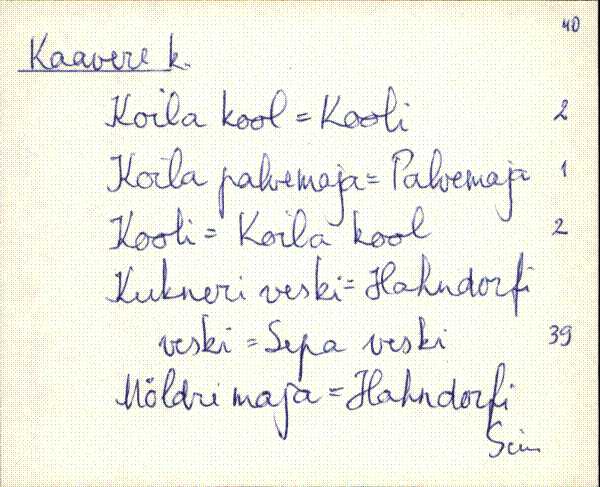 40
Kaavere k.
Koila kool = Kooli 2
Koila palvemaja = Palvemaja 1
Kooli = Koila kool 2
Kukneri veski = Hahndorfi
veski = Sepa veski 39
Möldri maja = Hahndorfi